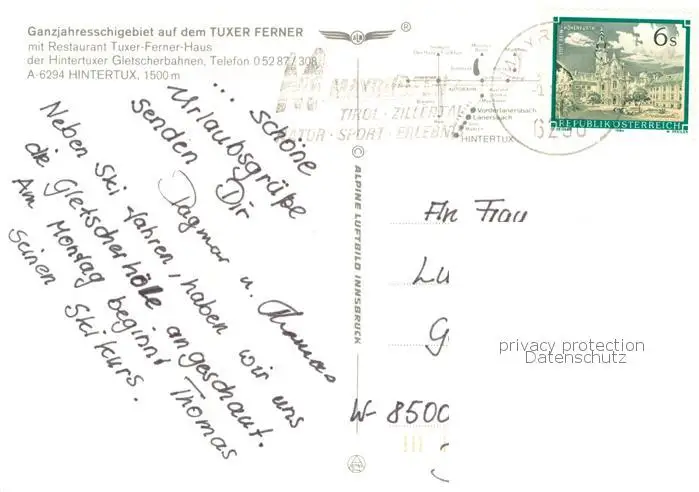 Ganzjahresschigebiet auf dem TUXER FERNER
mit Restaurant Tuxer-Ferner-Haus
der Hintertuxer Gletscherbahnen, Telefon 05287/308
A-6294 HINTERTUX, 1500 m
... schöne
Urlaubsgrüße
senden Dir
Dagmar u. Thomas
Neben Ski fahren, haben wir uns
die Gletscherhölle angeschaut.
Am Montag beginnt Thomas
seinen Skikurs.
®
MAYRHOFEN
TIROL · ZILLERTAL
NATUR · SPORT · ERLEBNIS
Vorderlanersbach
Lanersbach
HINTERTUX
6290
6 S
REPUBLIK ÖSTERREICH
© ALPINE LUFTBILD INNSBRUCK
An Frau
Lu
G
W-8500
privacy protection
Datenschutz